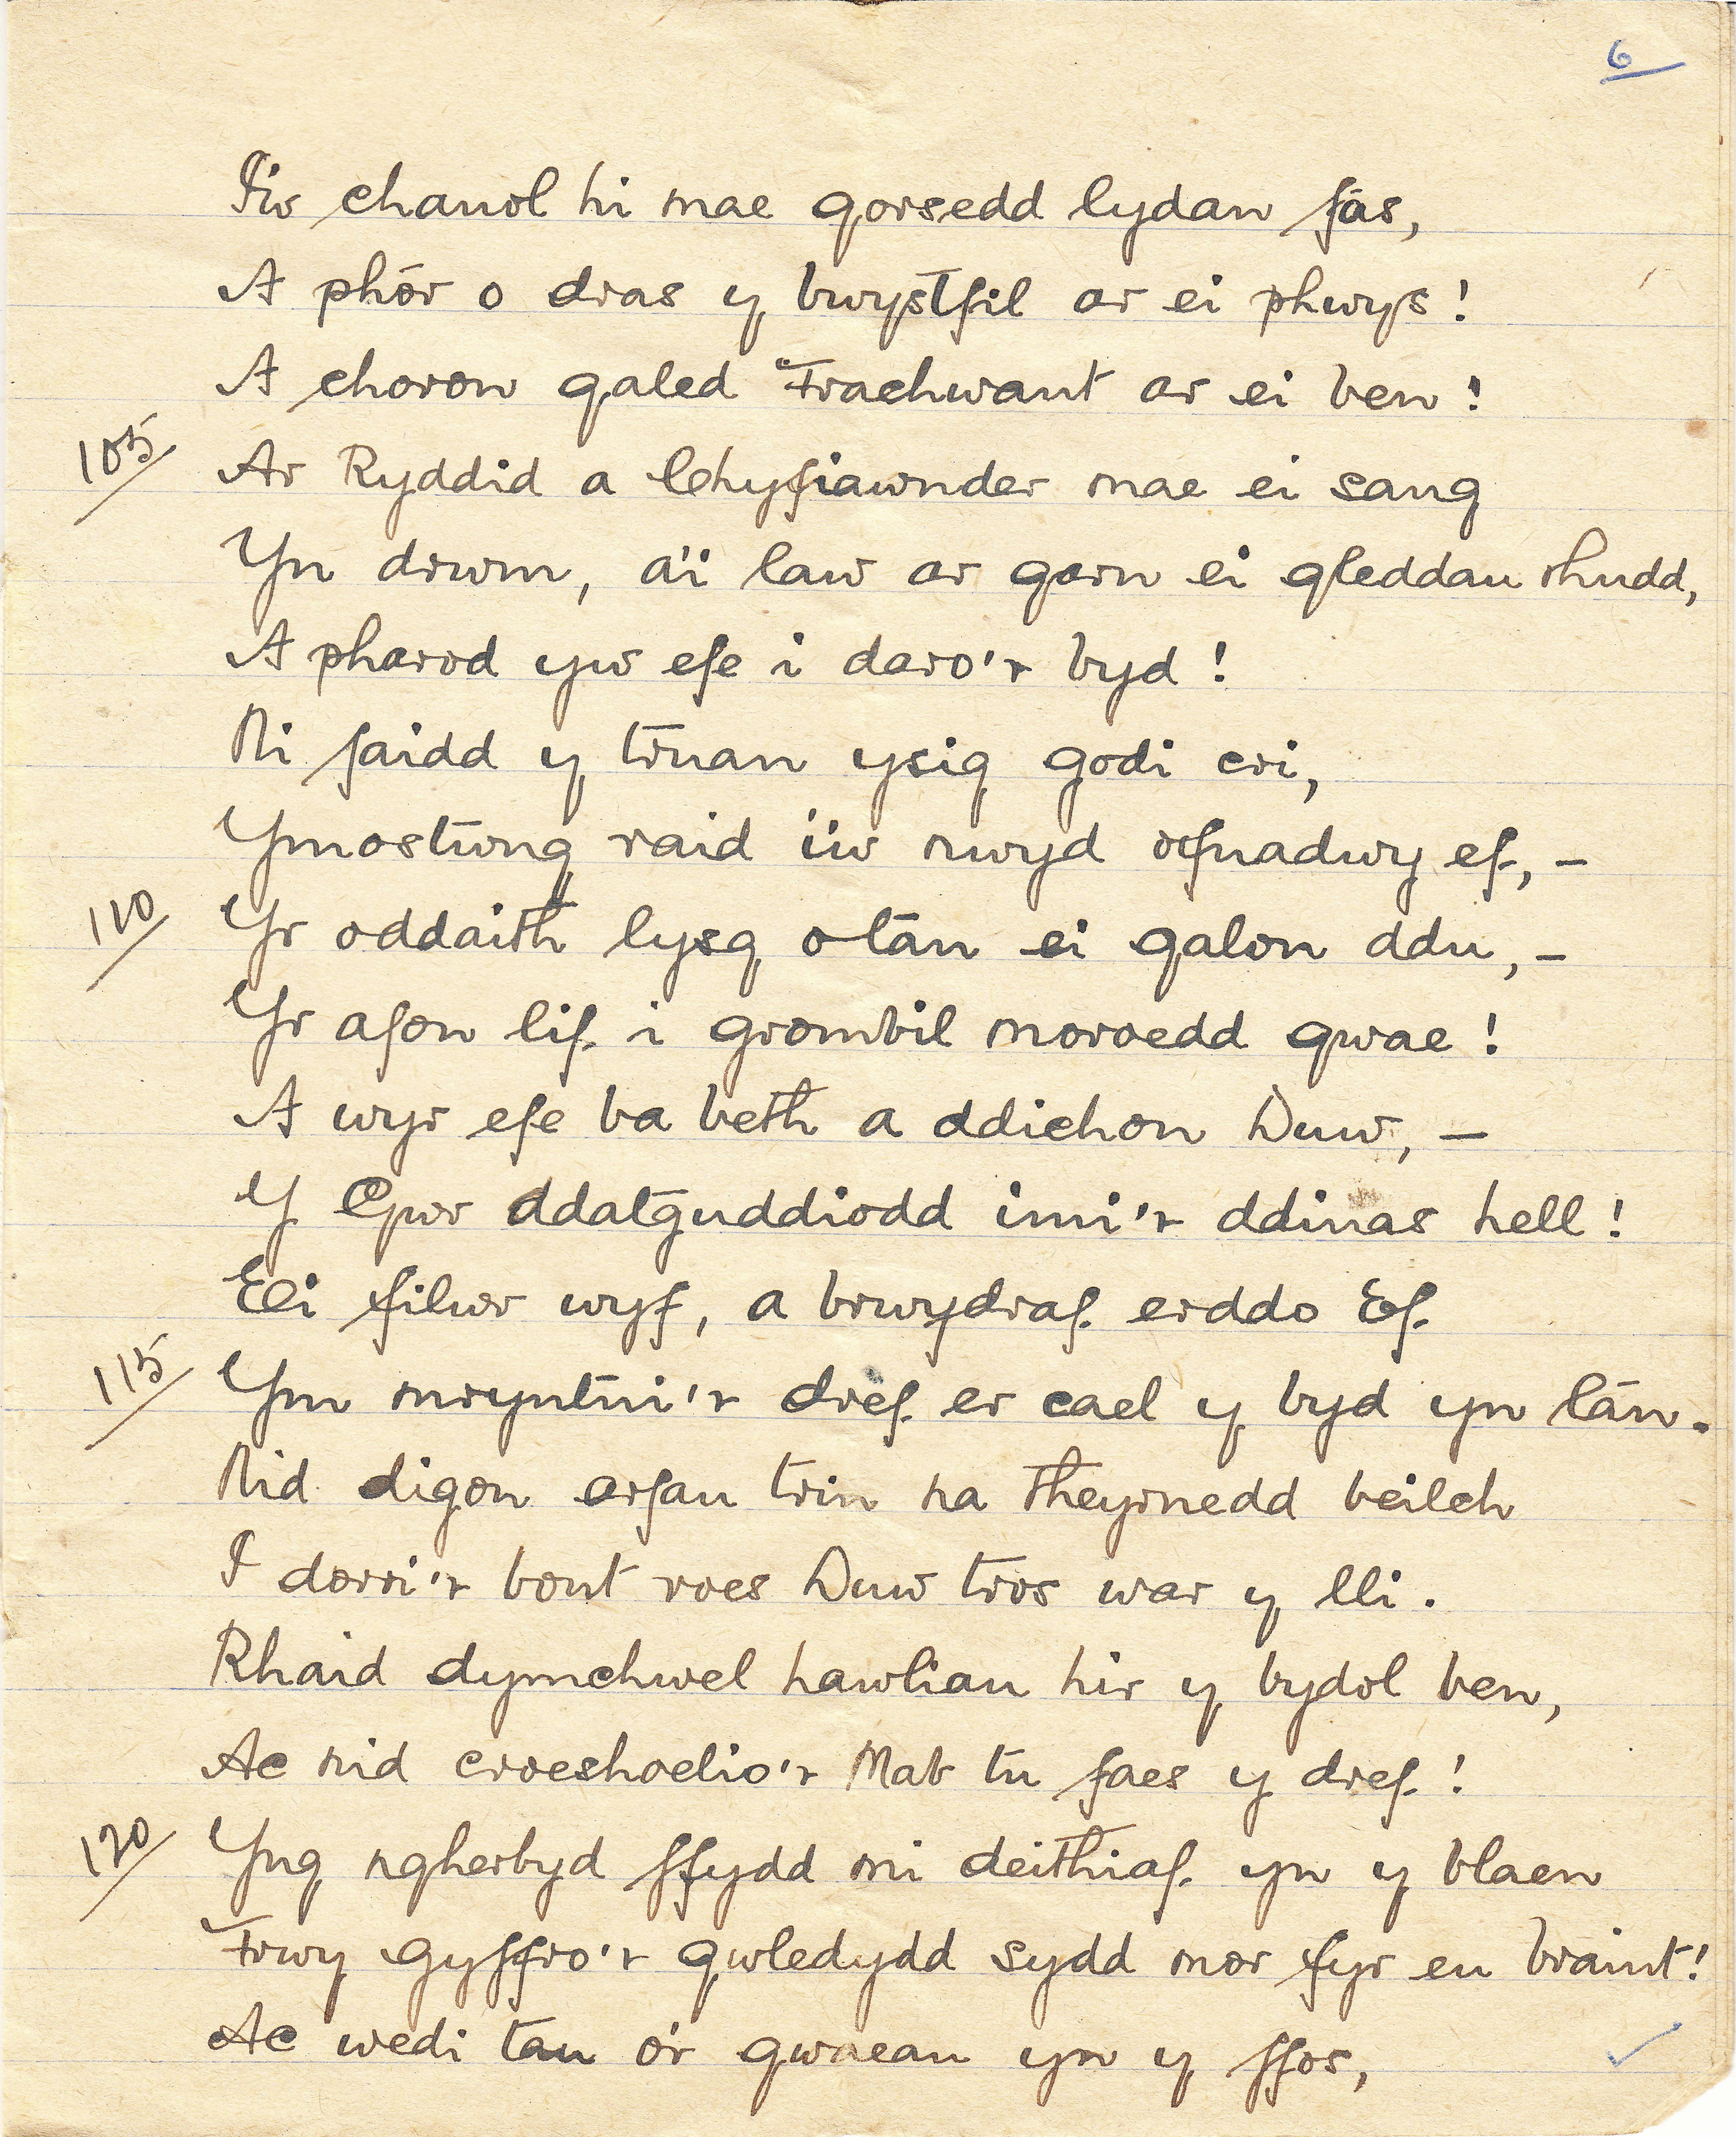 6
I'w chanol hi mae gorsedd lydan fás,
A phôr o dras y bwystfil ar ei phwys!
A choron galed Trachwant ar ei ben!
105/ Ar Ryddid a Chyfiawnder mae ei sang
Yn drwm, a'i law ar garn ei gleddau rhudd,
A pharod yw efe i daro'r byd!
Ni faidd y truan ysig godi cri,
Ymostwng raid i'w nwyd ofnadwy ef, –
110/ Yr oddaith lysg o tân ei galon ddu, –
Yr afon lif i grombil moroedd gwae!
A wyr efe ba beth a ddichon Duw, –
Y Gŵr ddatguddiodd imi'r ddinas hell!
Ei filwr wyf, a brwydraf erddo Ef
115/ Ym mryntni'r dref er cael y byd yn lân.
Nid digon arfau trin na theyrnedd beilch
I dorri'r bont roes Duw tros war y lli.
Rhaid dymchwel hawliau hir y bydol ben,
Ac nid croeshoelio'r Mab tu faes y dref!
120/ Yng ngherbyd ffydd mi deithiaf yn y blaen
Trwy gyffro'r gwledydd sydd mor fyr eu braint!
Ac wedi tau o'r gwaeau yn y ffos,